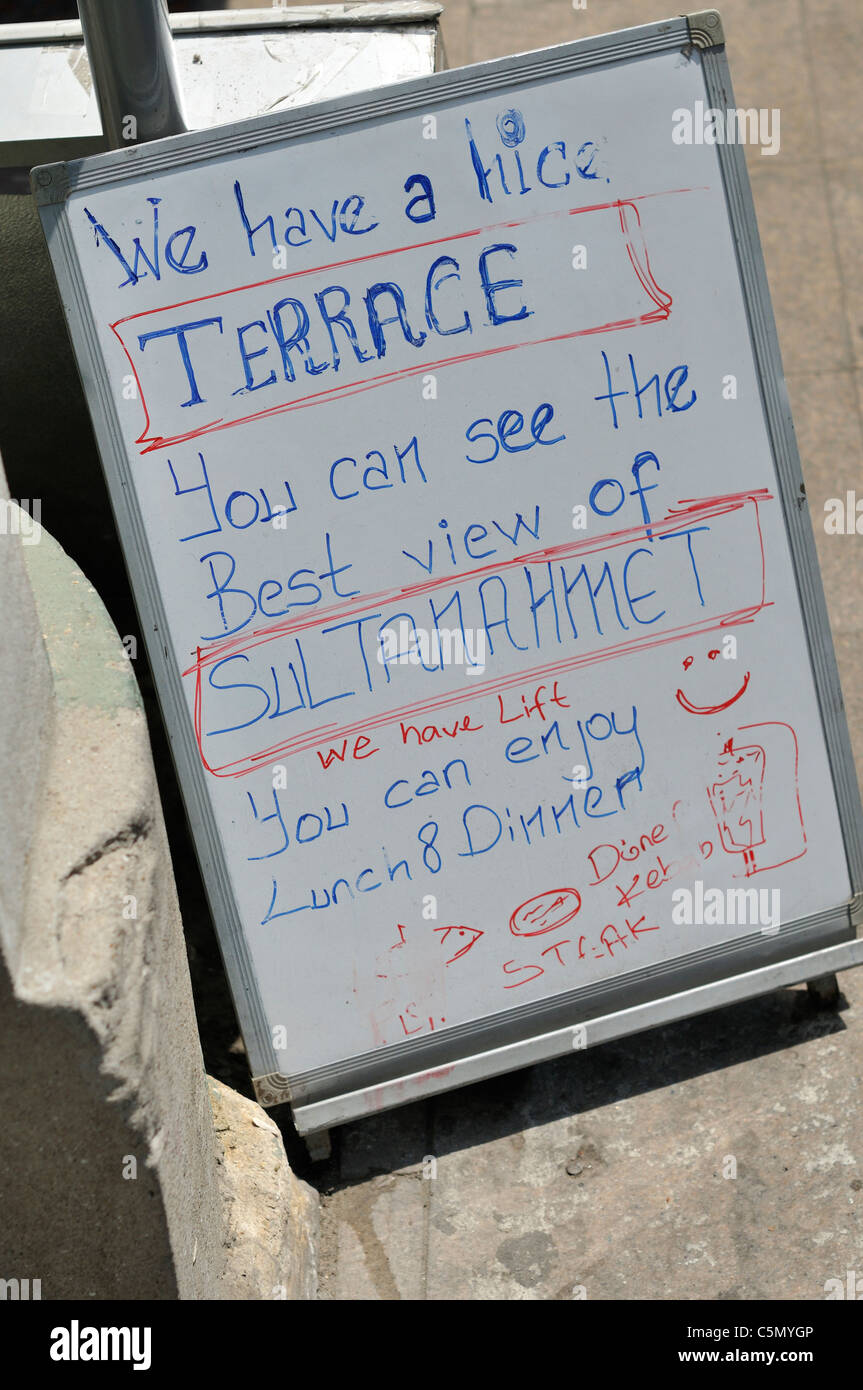 We have a nice
TERRACE
You can see the
Best view of
SULTANAHMET
we have Lift
You can enjoy
Lunch & Dinner
Döner
Kebab
STEAK
alamy
Image ID: C5MYGP
www.alamy.com